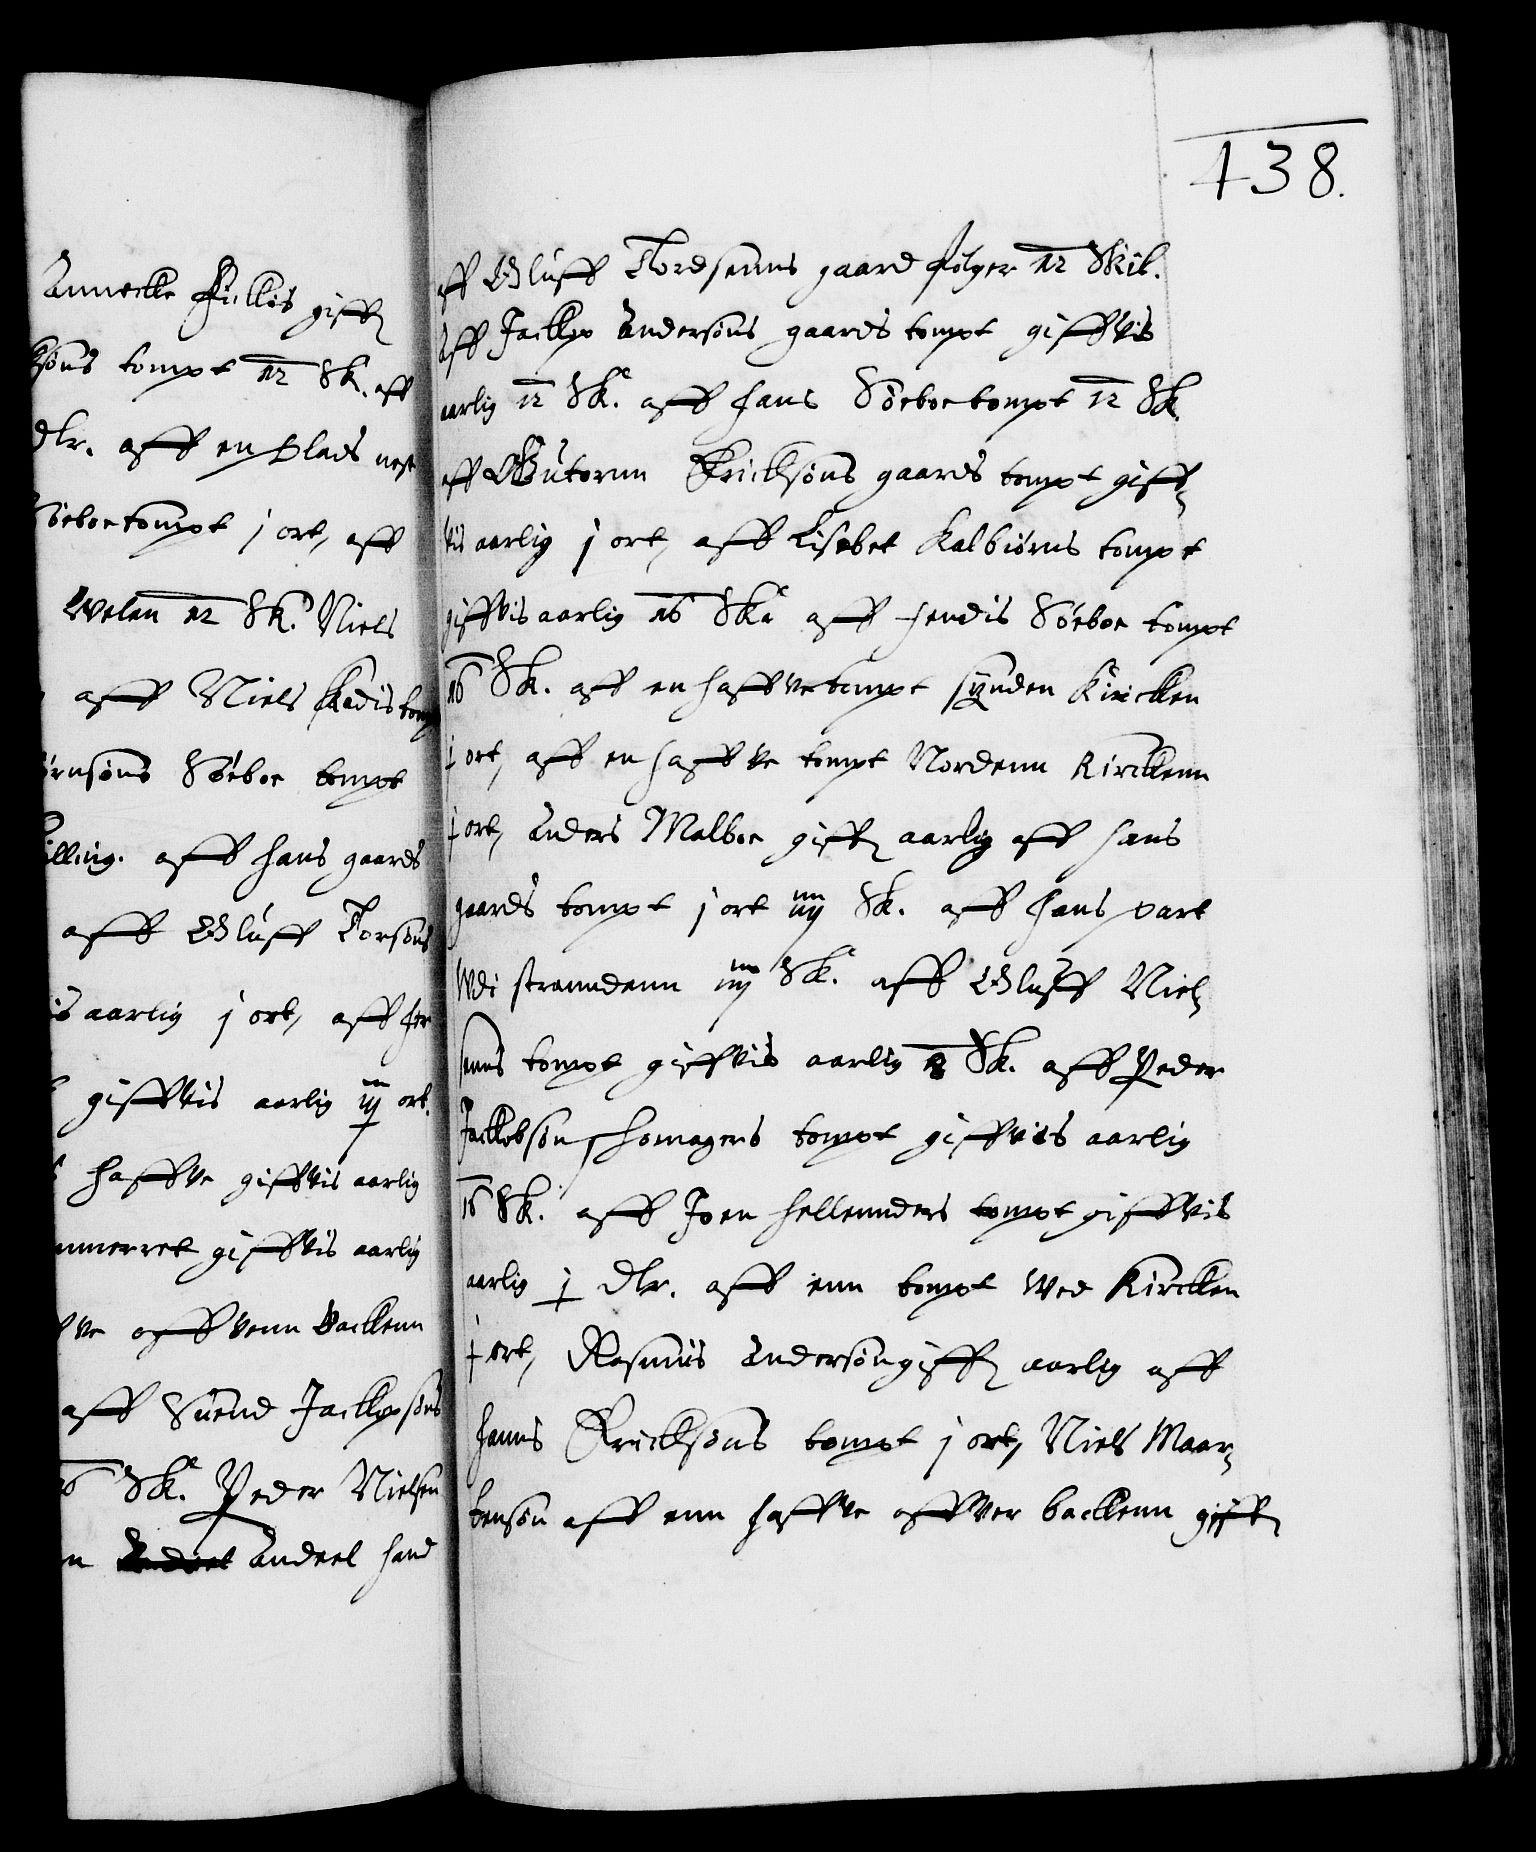 Annecke Fickes giffr
sons tompt 12 Sk. aff
dlr. aff en plads nest
Söeboe tompt j ort, aff
Welen 12 Sk. Niels
aff Niels Kadis tomp
örnsöns Söeboe tompt
illing. aff hans gaards
aff Oluff Torsöns
is aarlig j ort, aff her
giffvis aarlig iij ort.
haffve giffvis aarlig
mmerret giffvis aarlig
ve offvenn Backenn
aff Suend Jackopsöns
16 Sk. Peder Nielsen
n Andeel hand
438.
aff Oluff Tordsenns gaard følger 12 Skil.
aff Jackop Andersöns gaards tompt giffvis
aarlig 12 Sk. aff hans Söeboe tompt 12 Sk
aff Gutorm Ericksöns gaards tompt giff-
vis aarlig j ort, aff Lisebet Kalbiörns tompt
giffvis aarlig 16 Sk. aff hendis Söeboe tompt
16 Sk. aff en haffve tompt synden Kircken
j ort, aff en haffve tompt Nordenn Kirckenn
j ort, Anders Malboe giffr aarlig aff hans
gaards tompt j ort iiij Sk. aff hans part
Wdi stranndenn iiij Sk. aff Oluff Niel-
senns tompt giffvis aarlig 8 Sk. aff Peder
Jackobsön Skomagers tompt giffvis aarlig
16 Sk. aff Joen hellennders tompt giffvis
aarlig j dlr. aff enn tompt Wed Kircken
j ort, Rasmus Andersön giffr aarlig aff
hanns Ericksöns tompt j ort, Niels Maar-
tensön aff enn haffve offver backenn giffr